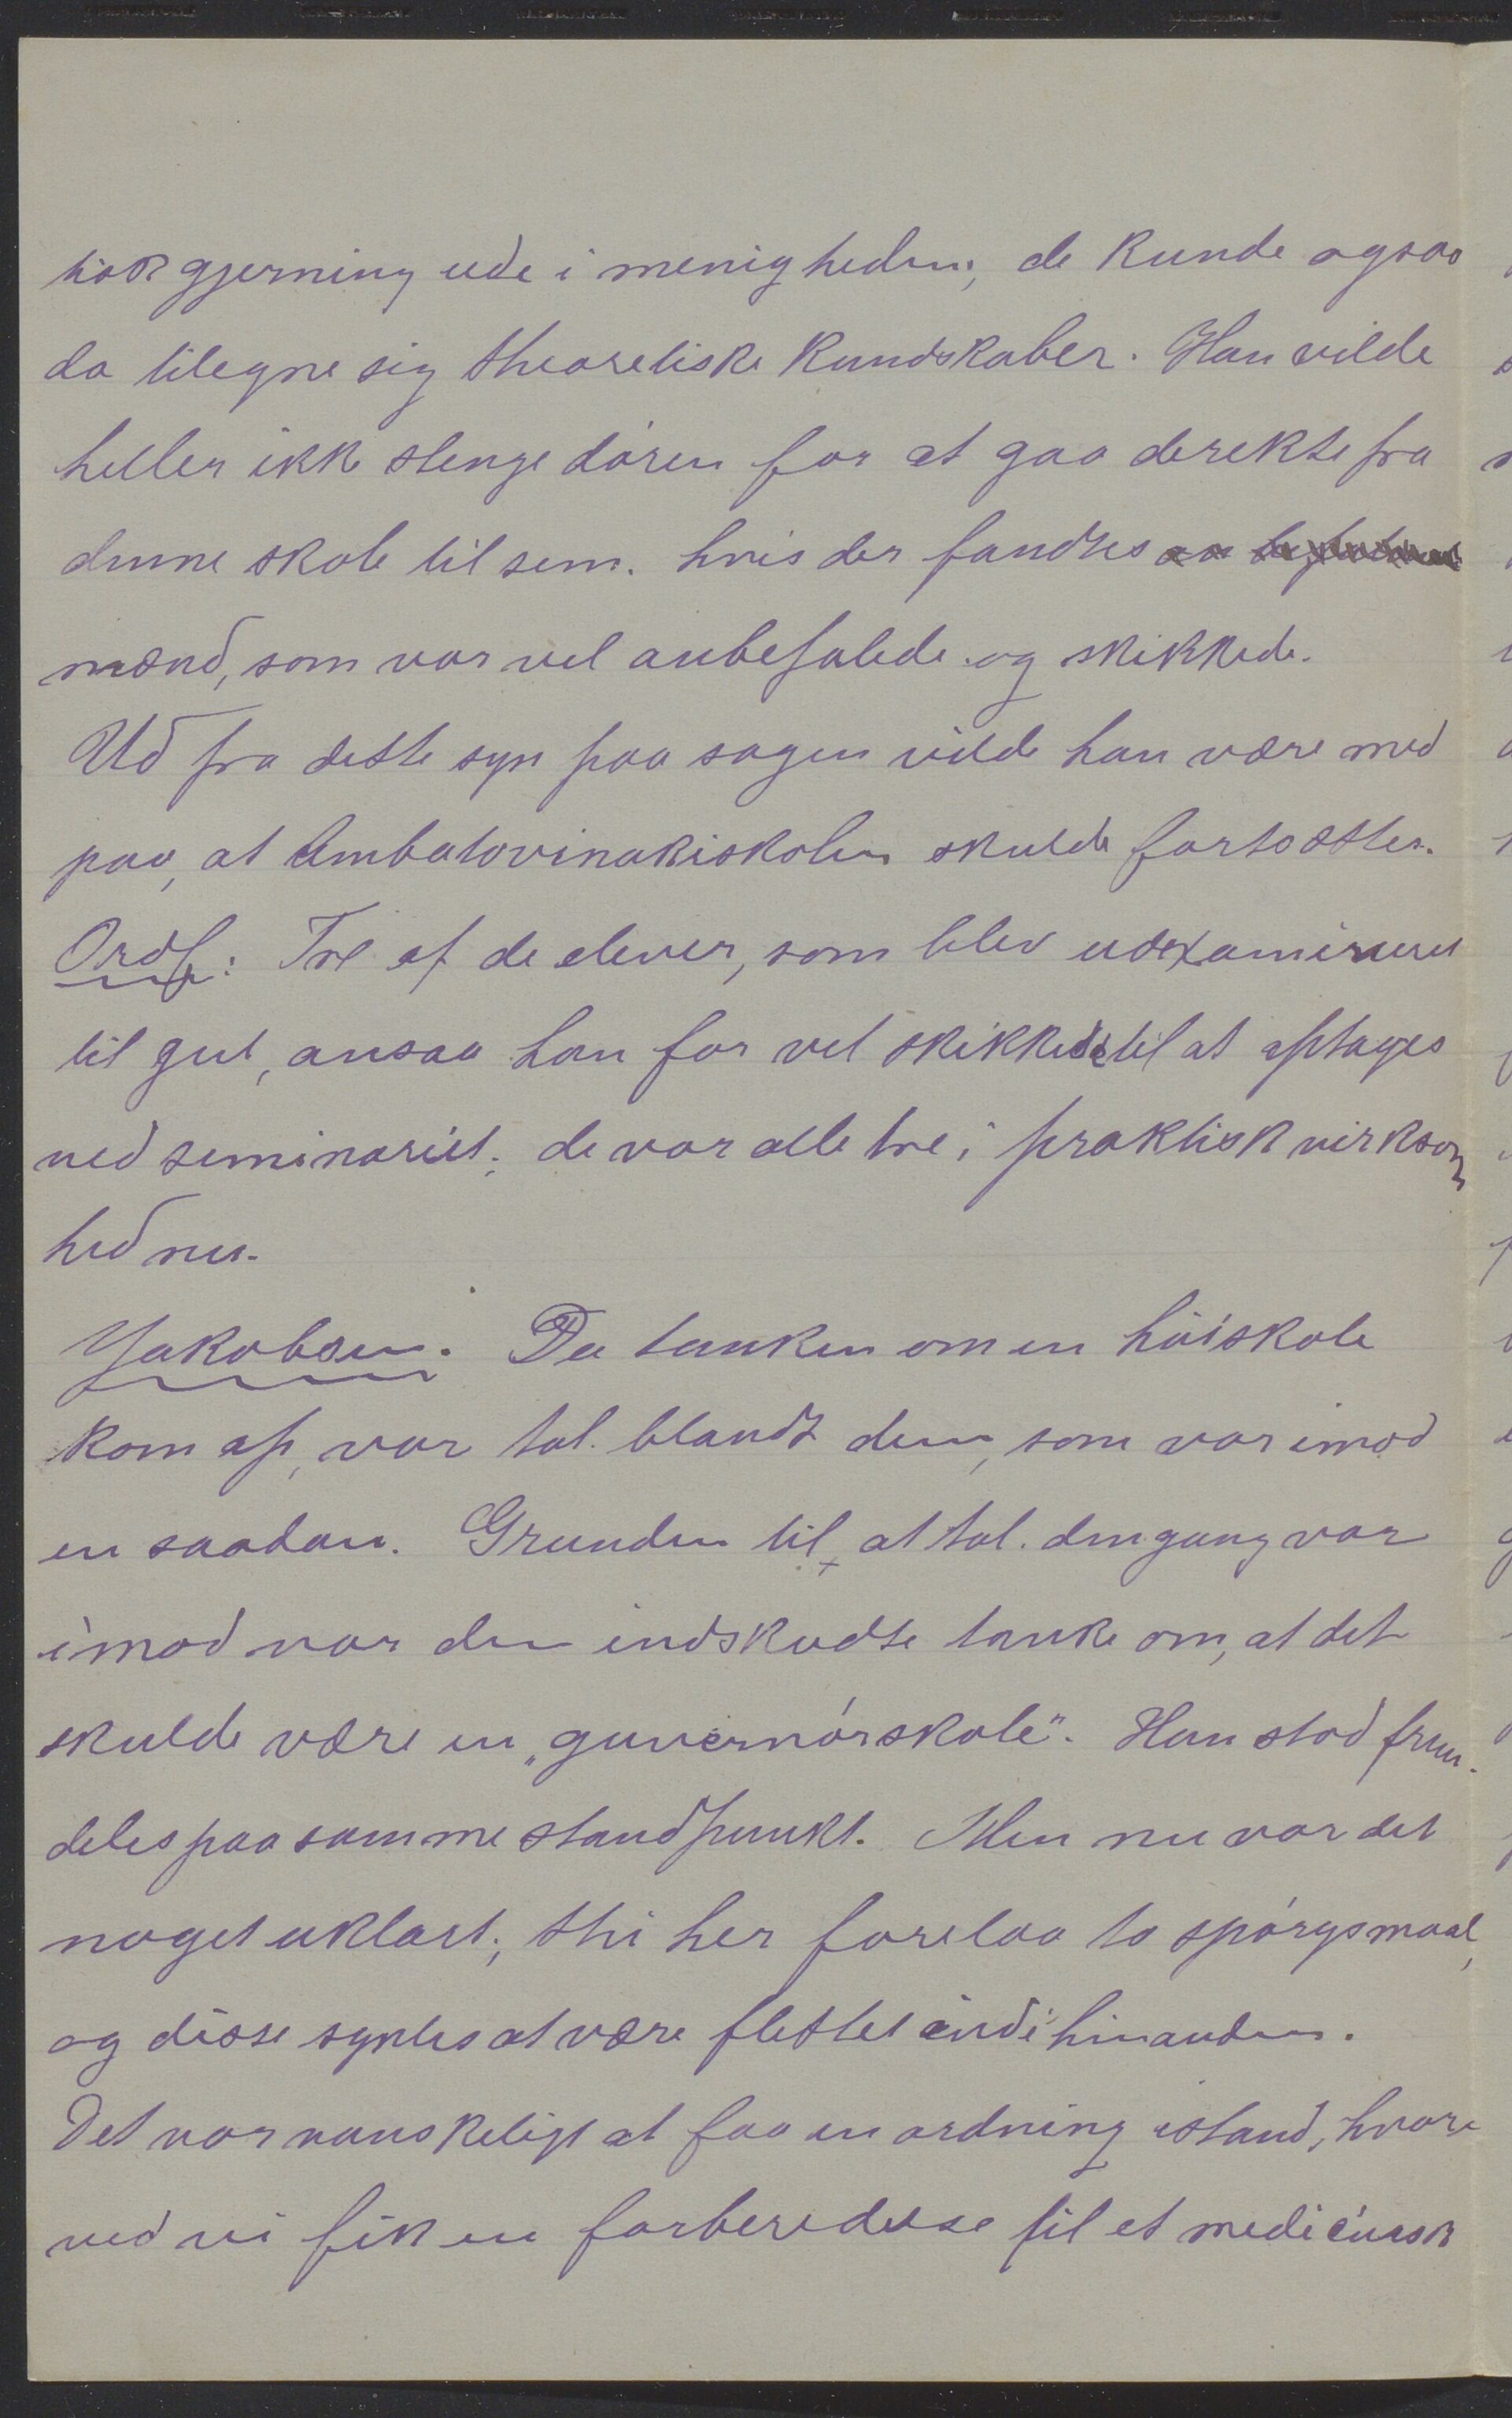 tisk gjerning ude i menigheden; de kunde ogsaa
da tilegne sig theoretiske kundskaber. Han vilde
heller ikke stenge døren for at gaa derekte fra
denne skole til sem. hvis der fandtes
mænd, som var vel anbefalede og skikkede.
Ud fra dette syn paa sagen vilde han være med
paa, at Ambatovinakiskolen skulde fortsættes.
Ordf: Tre af de elever, som blev udexamineret
til gut, ansaa han for vel skikkede til at optages
ved seminariet; de var alle tre i praktisk virksom
hed nu.
Jakobsen. Da tanken om en høiskole
kom op, var tal. blandt dem, som var imod
en saadan. Grunden til, at tal. dengang var
imod var den indskudte tanke om, at det
skulde være en „guvernørskole". Han stod frem-
deles paa samme standpunkt. Men nu var det
noget uklart; thi her forelaa to spørgsmaal,
og disse syntes at være flettet ind i hinanden.
Det var vanskeligt at faa en ordning istand, hvor-
ved vi fik en forberedelse til et medicinsk